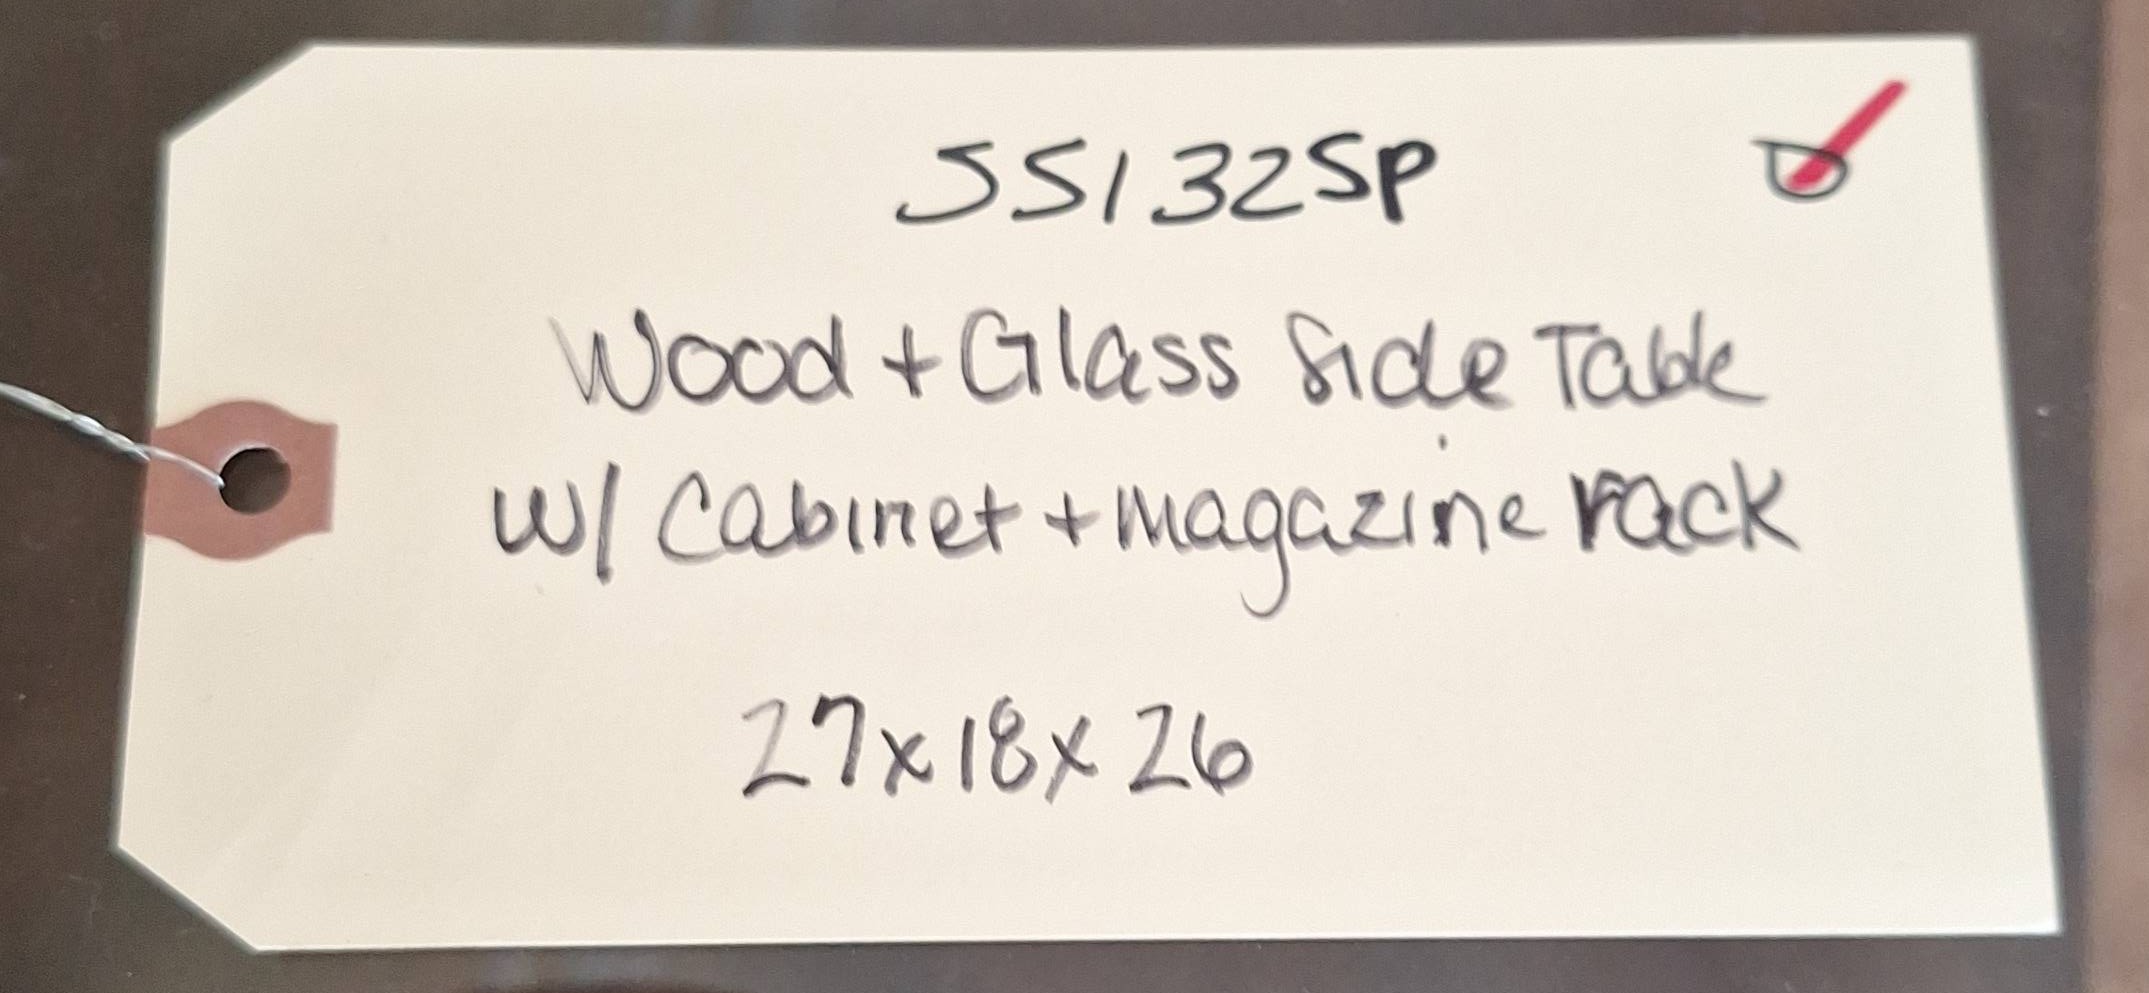 SS132SP
Wood + Glass Side Table
W/ Cabinet + Magazine rack
27x18x26